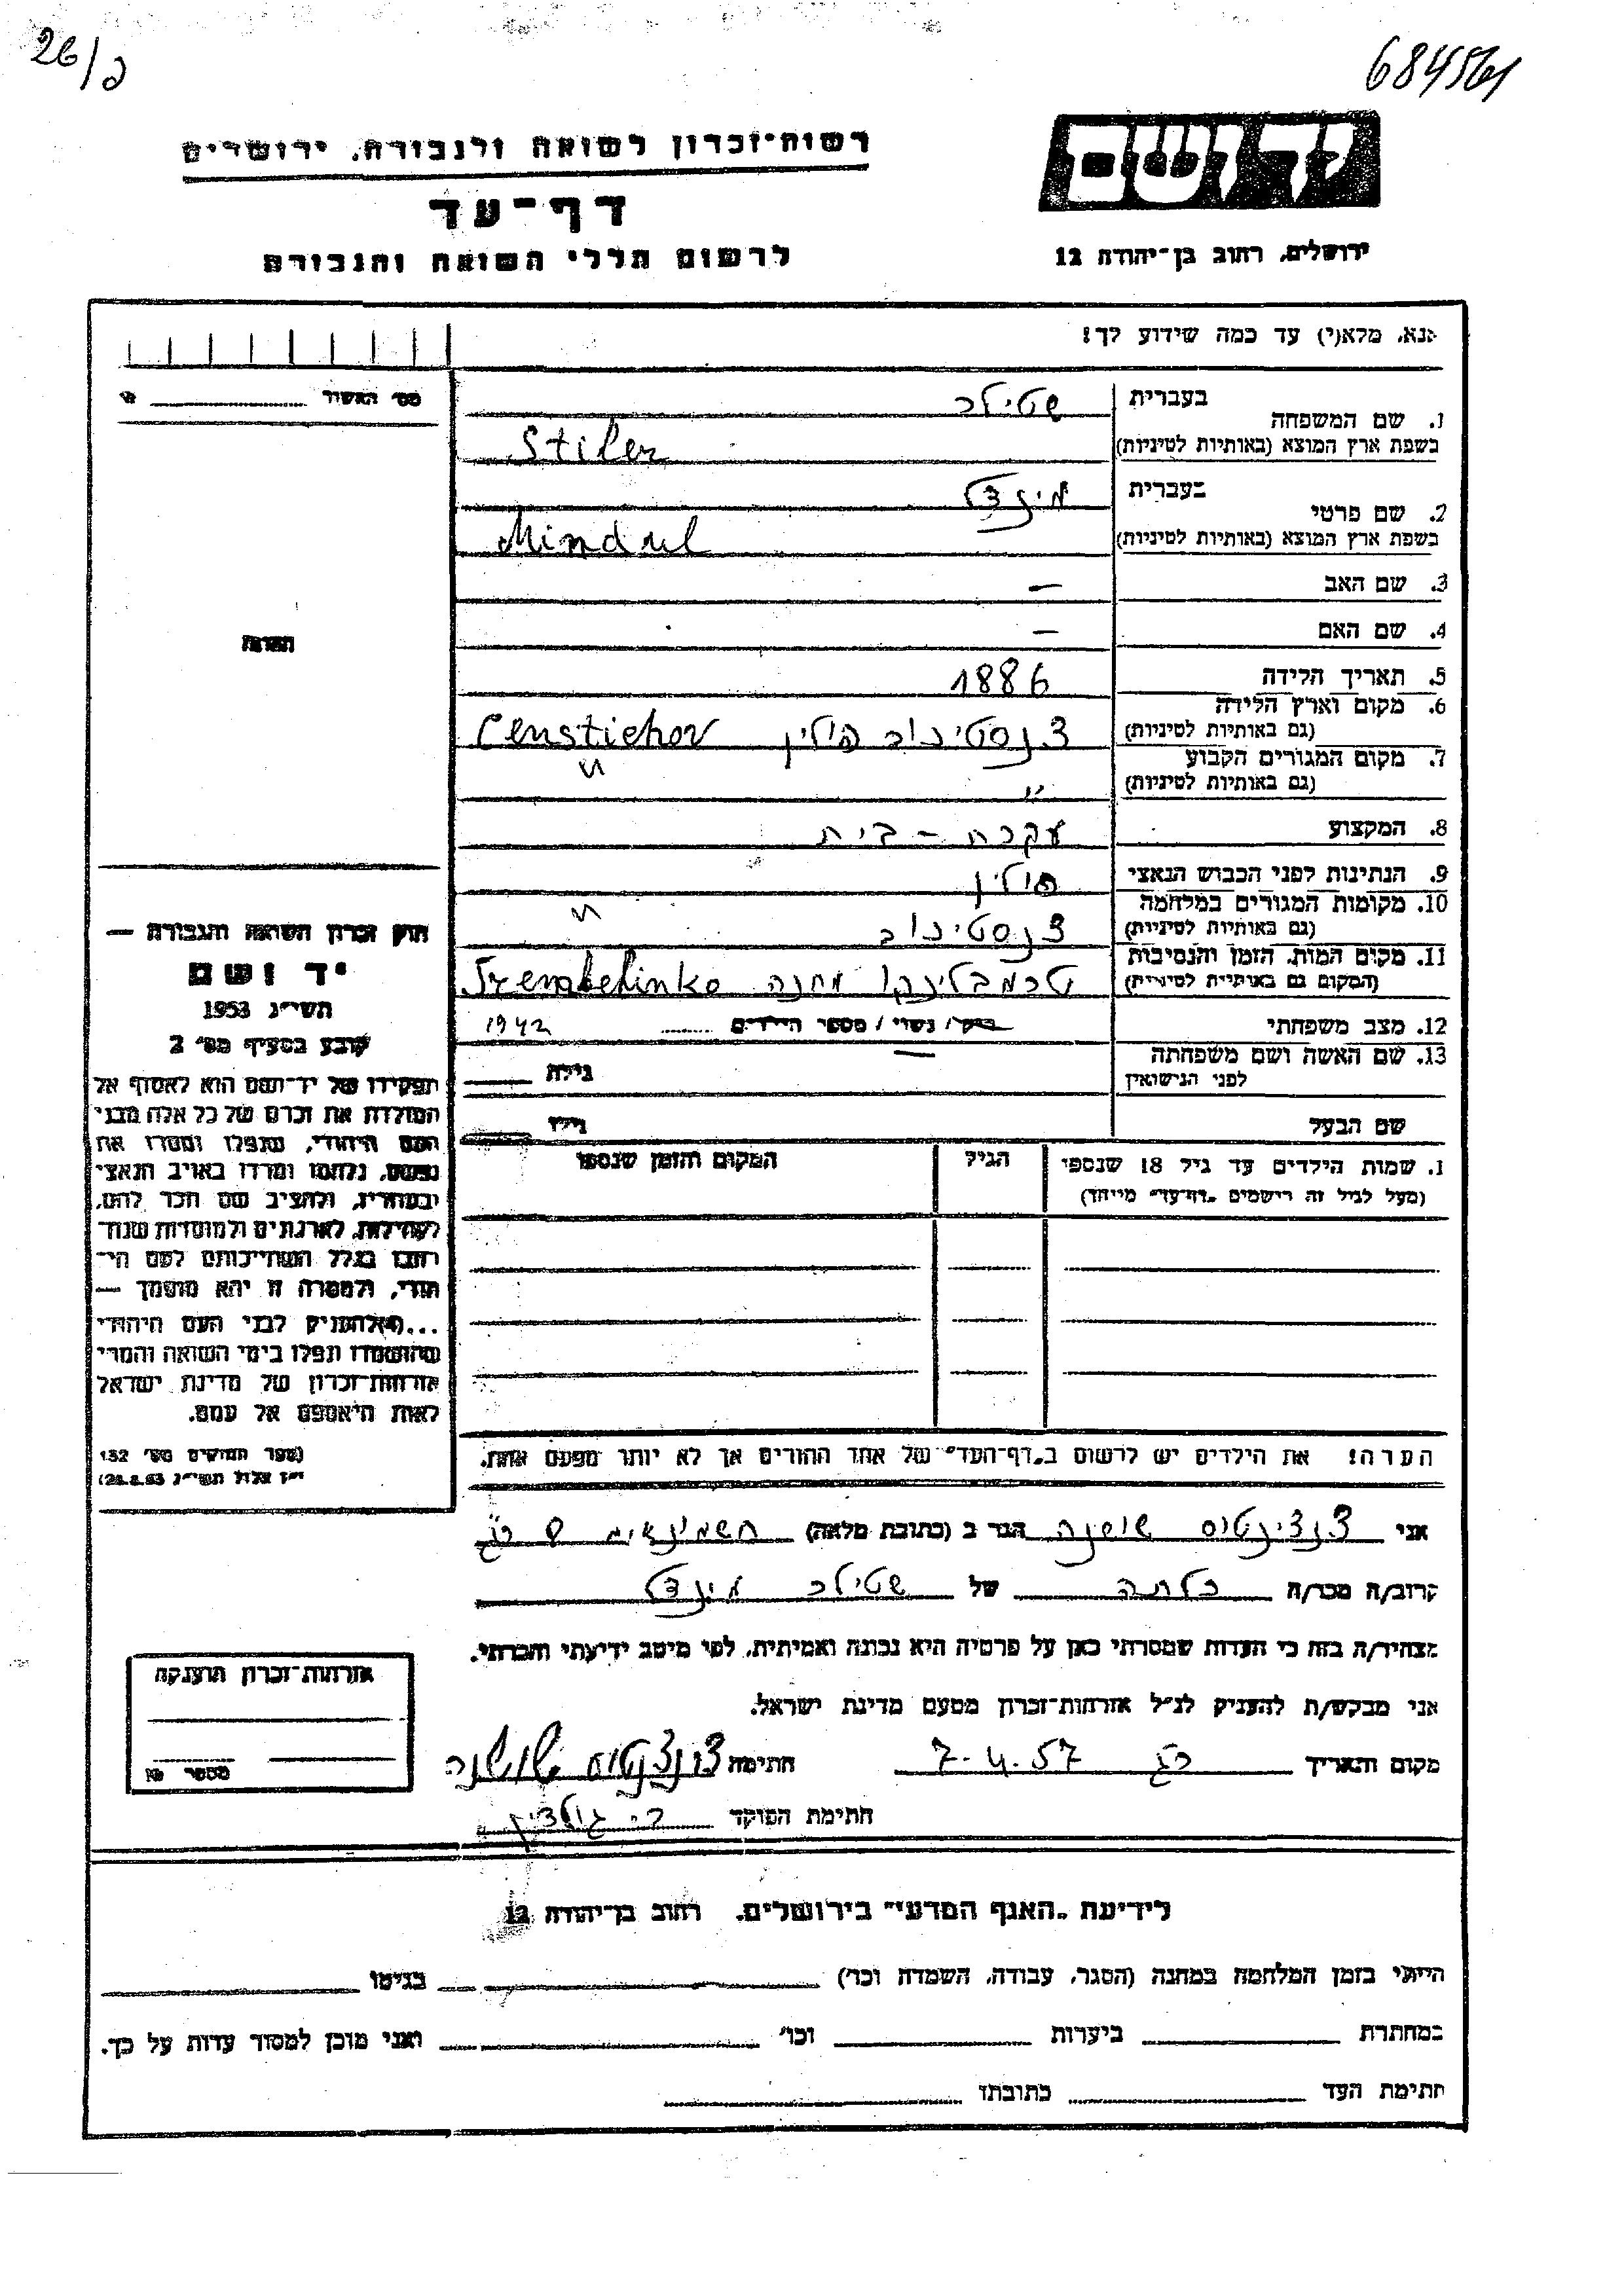 26/ג
רשות-זכרון לשואה ולגבורה, ירושלים
דף-עד
לרשום חללי השואה והגבורה
יד ושם
ירושלים, רחוב בן-יהודה 12
אנא, מלא(י) עד כמה שידוע לך!
מס' האשור
1. שם המשפחה בעברית שטילר
בשפת ארץ המוצא (באותיות לטיניות) Stiler
2. שם פרטי בעברית מינדל
בשפת ארץ המוצא (באותיות לטיניות) Mindul
3. שם האב —
4. שם האם —
5. תאריך הלידה 1886
6. מקום וארץ הלידה (גם באותיות לטיניות) צנסטיכוב פולין Censtichov
7. מקום המגורים הקבוע (גם באותיות לטיניות) " "
8. המקצוע עקרת-בית
9. הנתינות לפני הכבוש הנאצי פולין
10. מקומות המגורים במלחמה (גם באותיות לטיניות) צנסטיכוב "
11. מקום המות, הזמן והנסיבות (המקום גם באותיות לטיניות) טרמבלינקו מחנה Trembelinko
12. מצב משפחתי רווק/ נשוי/ מספר הילדים 1942
13. שם האשה ושם משפחתה לפני הנישואין — גילה
שם הבעל גילו
1. שמות הילדים עד גיל 18 שנספו הגיל המקום והזמן שנספו
(מעל לגיל זה רישמים "דף-עד" מיוחד)
הערה! את הילדים יש לרשום ב"דף-העד" של אחד ההורים אך לא יותר מפעם אחת.
תמונה
חוק זכרון השואה והגבורה —
יד ושם
תשי"ג 1953
קובע בסעיף מס' 2
תפקידו של יד-ושם הוא לאסוף אל
המולדת את זכרם של כל אלה מבני
העם היהודי, שנפלו ומסרו את
נפשם, נלחמו ומרדו באויב הנאצי
ובעוזריו, ולהציב שם וזכר להם,
לקהילות, לארגונים ולמוסדות שנח-
רבו בגלל השתייכותם לעם הי-
הודי, ולמטרה זו יהא מוסמך —
...להעניק לבני העם היהודי
שהושמדו ונפלו בימי השואה והמרי
אזרחות-זכרון של מדינת ישראל
לאות היאספם אל עמם.
(ספר החוקים מס' 132
י"ז אלול תשי"ג 28.8.53)
אני צנצינטוס שושנה הגר ב (כתובת מלאה) חשמונאים 8
קרוב/ה מכר/ה כלתה של שטילר מינדל
מצהיר/ה בזה כי העדות שמסרתי כאן על פרטיה היא נכונה ואמיתית, לפי מיטב ידיעתי והכרתי.
אני מבקש/ת להעניק לנ"ל אזרחות-זכרון מטעם מדינת ישראל.
מקום ותאריך רג 7.4.57 חתימה צנצינטוס שושנה
חתימת הפוקד
אזרחות-זכרון הוענקה
מספר №
לידיעת "האגף המדעי" בירושלים, רחוב בן-יהודה 12
הייתי בזמן המלחמה במחנה (הסגר, עבודה, השמדה וכו') בגיטו
במחתרת ביערות וכו' ואני מוכן למסור עדות על כך.
חתימת העד כתובתו